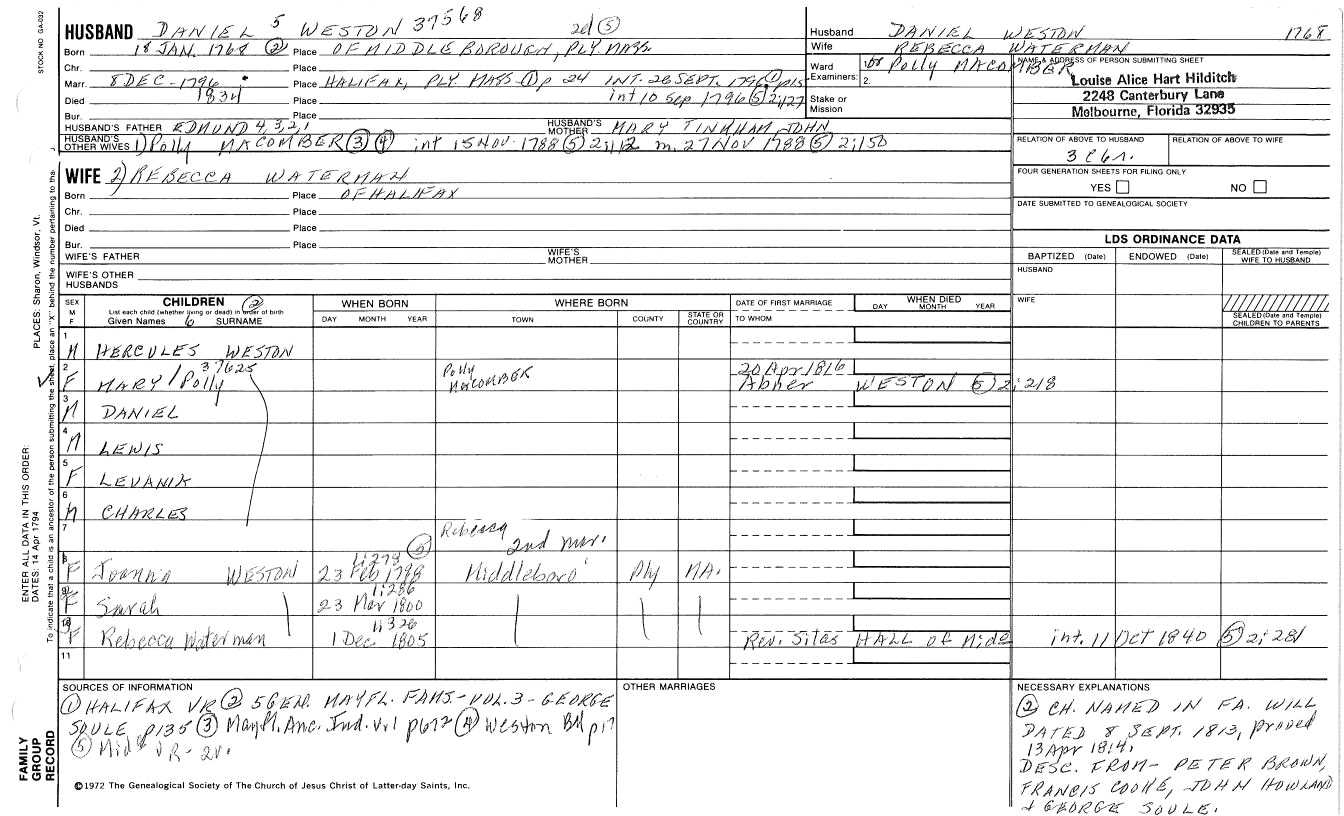 STOCK NO. GA-032
HUSBAND DANIEL 5 WESTON 37568 2d (5)
Born 18 JAN. 1768 (2) Place OF MIDDLEBOROUGH, PLY. MASS.
Chr. Place
Marr. 8 DEC - 1796 Place HALIFAX, PLY. MASS - (1) p 24 INT. 26 SEPT. 1796 (1) p15
Died 1834 Place int 10 Sep 1796 (5) 2;127
Bur. Place
HUSBAND'S FATHER EDMUND 4,3,2,1 HUSBAND'S MOTHER MARY TINKHAM, JOHN
HUSBAND'S OTHER WIVES 1) Polly MACOMBER (3) (4) int 15 Nov. 1788 (5) 2;112 m. 27 Nov 1788 (5) 2;150
Husband DANIEL WESTON 1768
Wife REBECCA WATERMAN
Ward Examiners: 1. or Polly MACOMBER
2.
Stake or Mission
NAME & ADDRESS OF PERSON SUBMITTING SHEET
Louise Alice Hart Hilditch
2248 Canterbury Lane
Melbourne, Florida 32935
RELATION OF ABOVE TO HUSBAND RELATION OF ABOVE TO WIFE
FOUR GENERATION SHEETS FOR FILING ONLY
YES NO
DATE SUBMITTED TO GENEALOGICAL SOCIETY
WIFE 2) REBECCA WATERMAN
Born Place OF HALIFAX
Chr. Place
Died Place
Bur. Place
WIFE'S FATHER WIFE'S MOTHER
WIFE'S OTHER HUSBANDS
LDS ORDINANCE DATA
BAPTIZED (Date) ENDOWED (Date) SEALED (Date and Temple) WIFE TO HUSBAND
HUSBAND
WIFE
SEALED (Date and Temple) CHILDREN TO PARENTS
SEX M F CHILDREN (2) List each child (whether living or dead) in order of birth Given Names 6 SURNAME
WHEN BORN DAY MONTH YEAR
WHERE BORN TOWN COUNTY STATE OR COUNTRY
DATE OF FIRST MARRIAGE TO WHOM
WHEN DIED DAY MONTH YEAR
1 M HERCULES WESTON
2 F MARY / Polly 37625 Polly MACOMBER 20 Apr 1816 Abner WESTON (5) 2;218
3 M DANIEL
4 M LEWIS
5 F LEVANIA
6 M CHARLES
7 Rebecca 2nd mar.
8 F Joanna WESTON 23 Feb 1798 1;278 (5) Middleboro' Ply MA.
9 F Sarah 23 Mar 1800 1;286
10 F Rebecca Waterman 1 Dec. 1805 1;326 Rev. Silas HALL of Midd int. 11 Oct 1840 (5) 2;281
11
SOURCES OF INFORMATION
(1) HALIFAX VR (2) 5 GEN. MAYFL. FAMS - VOL. 3 - GEORGE
SOULE p135 (3) Mayfl. Anc. Ind. Vol 1 p672 (4) Weston p17
(5) Midd VR - 2v.
OTHER MARRIAGES
NECESSARY EXPLANATIONS
(2) CH. NAMED IN FA. WILL
DATED 8 SEPT. 1813, proved
13 Apr 1814.
DESC. FROM - PETER BROWN,
FRANCIS COOKE, JOHN HOWLAND
& GEORGE SOULE.
©1972 The Genealogical Society of The Church of Jesus Christ of Latter-day Saints, Inc.
FAMILY GROUP RECORD
ENTER ALL DATA IN THIS ORDER:
DATES: 14 Apr 1794
PLACES: Sharon, Windsor, Vt.
To indicate that a child is an ancestor of the person submitting the sheet, place an "X" behind the number pertaining to the